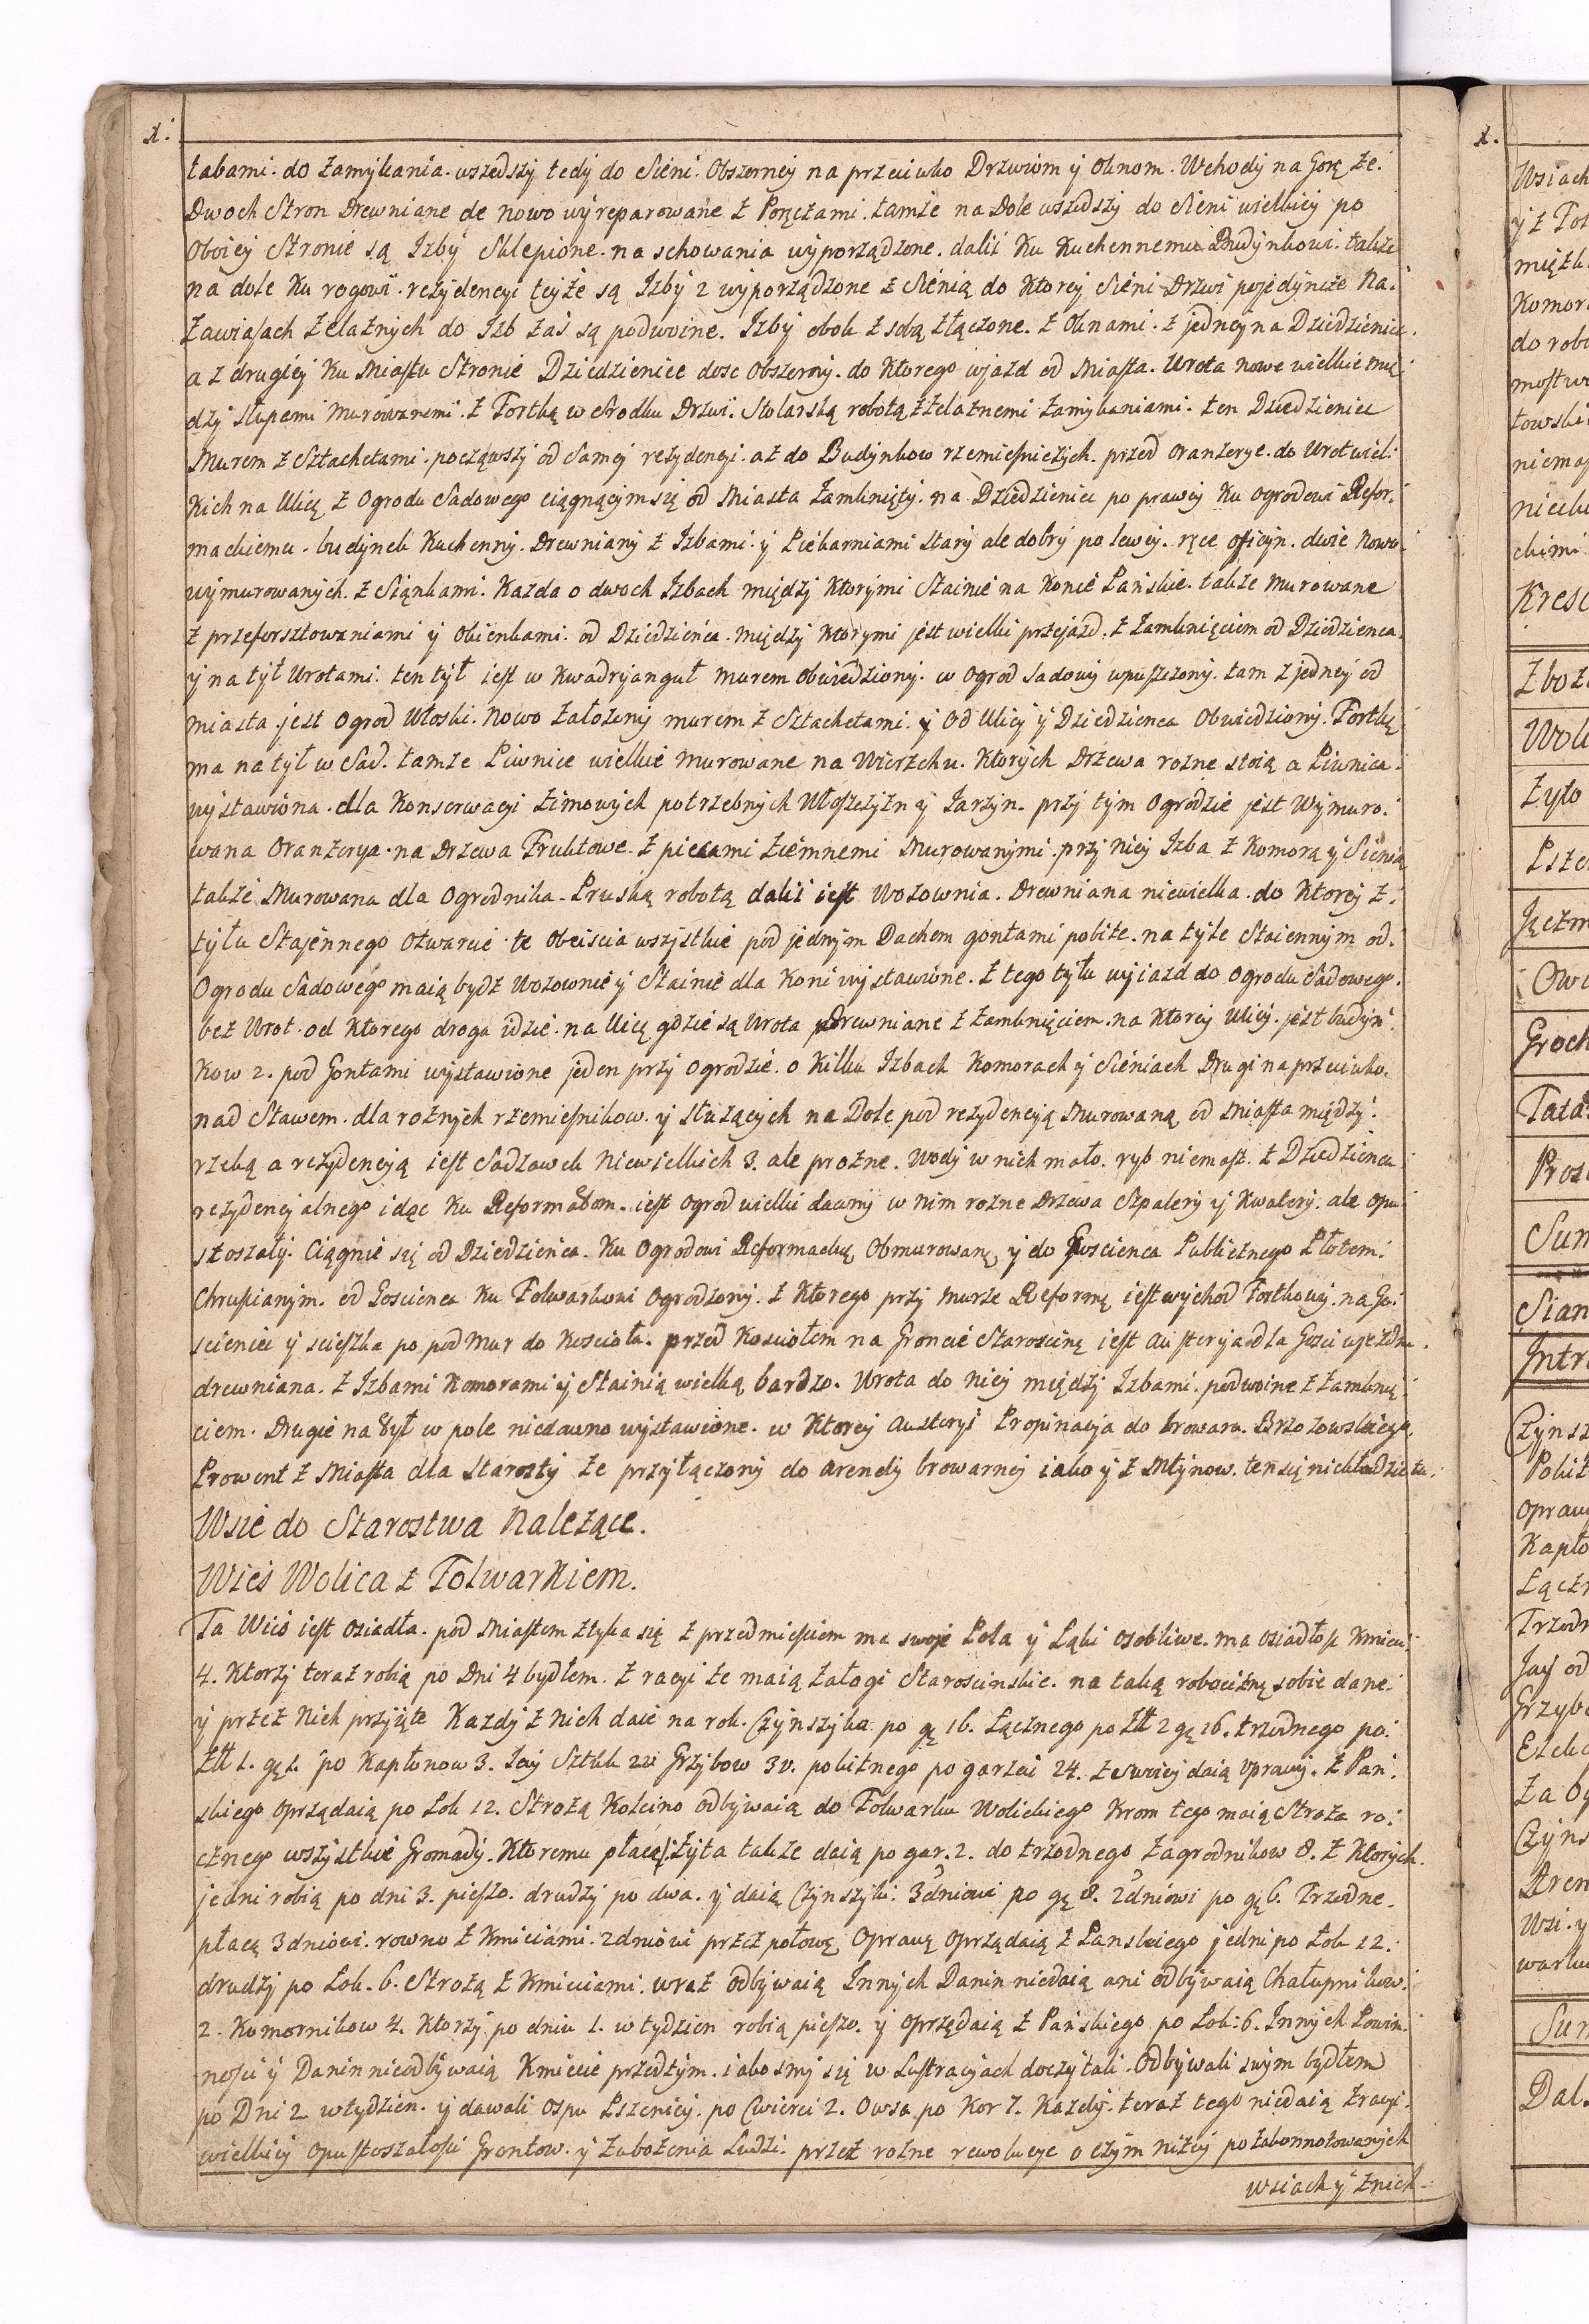 x:
tabami. do zamykania. uszedszy tedy do Sieni. Obszerney na przeciwko Drzwiom y oknom. Wchody na Gorę ze.
Dwoch Stron Drewniane de nowo wyreparowane z Poręczami. tamże na Dole uszedszy do Sieni wielkiey po
Oboiey Stronie są Izby Sklepione. na schowania wyporządzone. dalii Ku Kuchennemu Budynkowi. także
na dole Ku rogowi. rezydencyi teyże są Izby 2 wyporządzone z Sienią do Ktorey Sieni Drzwi pojedyncze Na.
Zawiasach żelaznych do Izb zaś są podwoine. Izby obok z sobą złączone. z Oknami. z jedney na Dziedzieniec.
a z drugiey Ku Miastu Stronie Dziedzieniec dosc Obszerny. do Ktorego wjazd od Miasta. Wrota nowe wielkie mię
dzy Słupami murowanemi. z Fortką w Srodku Drzwi. Stolarską robotą z żelaznemi zamykaniami. ten Dziedzieniec
Murem z Sztachetami. począwszy od Samey rezydencyi. aż do Budynkow rzemiesniczych. przed Oranżerye. do Wrot wiel:
Kich na Ulicę z Ogrodu Sadowego ciągnącym się od Miasta zamknięty. na Dziedzieniec po prawey Ku ogrodowi Refor.
mackiemu. budynek Kuchenny. Drewniany z Izbami. y Piekarniami Stary ale dobry po lewey. ręce oficyn. dwie Nowo.
wymurowanych. z Siąnkami. Kazda o dwoch Izbach między Ktorymi Stainie na Konie Pańskie. także murowane
z przeforsztowaniami y Okienkami. od Dziedzieńca. między Ktorymi jest wielki przejazd. z zamknięciem od Dziedzienca.
y na tył Wrotami. ten tył iest w Kwadryanguł murem Obwiedziony. w Ogrod Sadowy wpuszczony. tam z jedney od
miasta jest Ogrod Włoski. Nowo założony murem z Sztachetami. y Od Ulicy y Dziedzienca Obwiedziony. Fortkę
ma na tył w Sad. tamże Piwnice wielkie murowane na Wierzchu. Ktorych Drzewa rozne stoią a Piwnica.
wystawiona. dla Konserwacyi zimowych potrzebnych Włoszczyzn y Jarzyn. przy tym Ogrodzie jest Wymuro.
wana Oranżerya. na Drzewa Fruktowe. z piecami ziemnemi Murowanymi. przy niey Izba z Komorą y Sienią
także Murowana dla Ogrodnika. Pruską robotą dalii iest Wozownia. Drewniana niewielka. do Ktorey z.
tyłu Stajennego Otwarcie. te Obeiscia wszystkie pod jednym Dachem gontami pobite. na tyle Staiennym od.
Ogrodu Sadowego maią bydz Wozownie y Stainie dla Koni wystawione. z tego tyłu wyiazd do Ogrodu Sadowego.
bez Wrot. od Ktorego droga idzie. na Ulicę gdzie są Wrota Drewniane z zamknięciem. na Ktorey Ulicy. jest budyn.
Kow 2. pod Gontami wystawione jeden przy Ogrodzie. o Kilku Izbach Komorach y Sieniach Drugi na przeciwko.
nad Stawem. dla rożnych rzemiesnikow. y Służących na Dole pod rezydencyą Murowaną od Miasta między.
rzeką a rezydencyą iest Sadzawek Niewielkich 3. ale prozne. Wody w nich mało. ryb niemasz. z Dziedzienca
rezydencyalnego idąc Ku Reformatom. iest Ogrod wielki dawny w nim rozne Drzewa Szpalery y Kwatery. ale opu
stoszały. Ciągnie się od Dziedzieńca. Ku Ogrodowi Reformackę Obmurowanę y do Goscienca Publicznego Płotem.
Chruscianym. od Goscienca Ku Folwarkowi Ogrodzony. z Ktorego przy murze Reformę iest wychod Fortkowy. na Go.
scieniec y scieszka po pod Mur do Koscioła. przed Kosciołem na Groncie Staroscinę iest Austerya dla Gosci wjezdna.
drewniana. z Izbami Komorami y Stainią wielką bardzo. Wrota do niey między Izbami. podwoine z zamknię
ciem. Drugie na tył w pole niedawno wystawione. w Ktorey Austeryi Propinacya do browaru. Brzozowskiego.
Prowent z Miasta dla Starosty że przyłączony do Arendy browarney iako y z Młynow. ten się nie kładzie tu.
Wsie do Starostwa Nalezące.
Wieś Wolica z Folwarkiem.
Ta Wieś iest osiadła. pod Miastem styka się z przedmiesciem ma swoje Pola y Łąki osobliwe. ma osiadłosc Kmieci.
4. Ktorzy teraz robią po Dni 4 bydłem. z racyi że maią załogi Staroscinskie. na taką robociznę sobie dane.
y przez Nich przyięte Każdy z Nich daie na rok. Czynszyku po gę 16. Łącznego po Złł 2 gę 16. trzodnego po.
Złł 1. gę 1. po Kapłonow 3. Jay Sztuk 20 Grzybow 30. pobitnego po garzci 24. z swoiey daią oprawy. z Pań.
skiego oprządaią po Łok 12. Strożą Koleino odbywaią do Folwarku Wolickiego Krom tego maią Stroża ro.
cznego wszystkie Gromady. Ktoremu płacą Żyta także daią po gar. 2. do trzodnego Zagrodnikow 8. z Ktorych.
jedni robią po dni 3. pieszo. drudzy po dwa. y daią Czynszyku: 3dniowi po gę 8. 2dniowi po gę 6. Trzodne.
płacą 3dniowi. rowno z Kmiciami. 2dniowi przez połowę Oprawę oprządaią z Panskiego jedni po Łok 12.
drudzy po Łok. 6. Strożą z Kmiciami. wraz odbywaią Innych Danin niedaią ani odbywaią Chałupnikow.
2. Komornikow 4. Ktorzy po dniu 1. w tydzien robią pieszo. y oprządaią z Pańskiego po Łok: 6. Innych Powin.
nosci y Danin nieodbywaią Kmiecie przedtym. iako smy się w Lustracyach doczytali. odbywali swym bydłem
po Dni 2 w tydzien. y dawali Ospu Pszenicy. po Cwierci 2. Owsa po Kor 7. Kazdy. teraz tego niedaią z racyi.
wielkiey opustoszałosci Grontow. y zubożenia Ludzi. przez rozne rewolucye o czym niżey po zakonnotowanych
wsiach y z nich